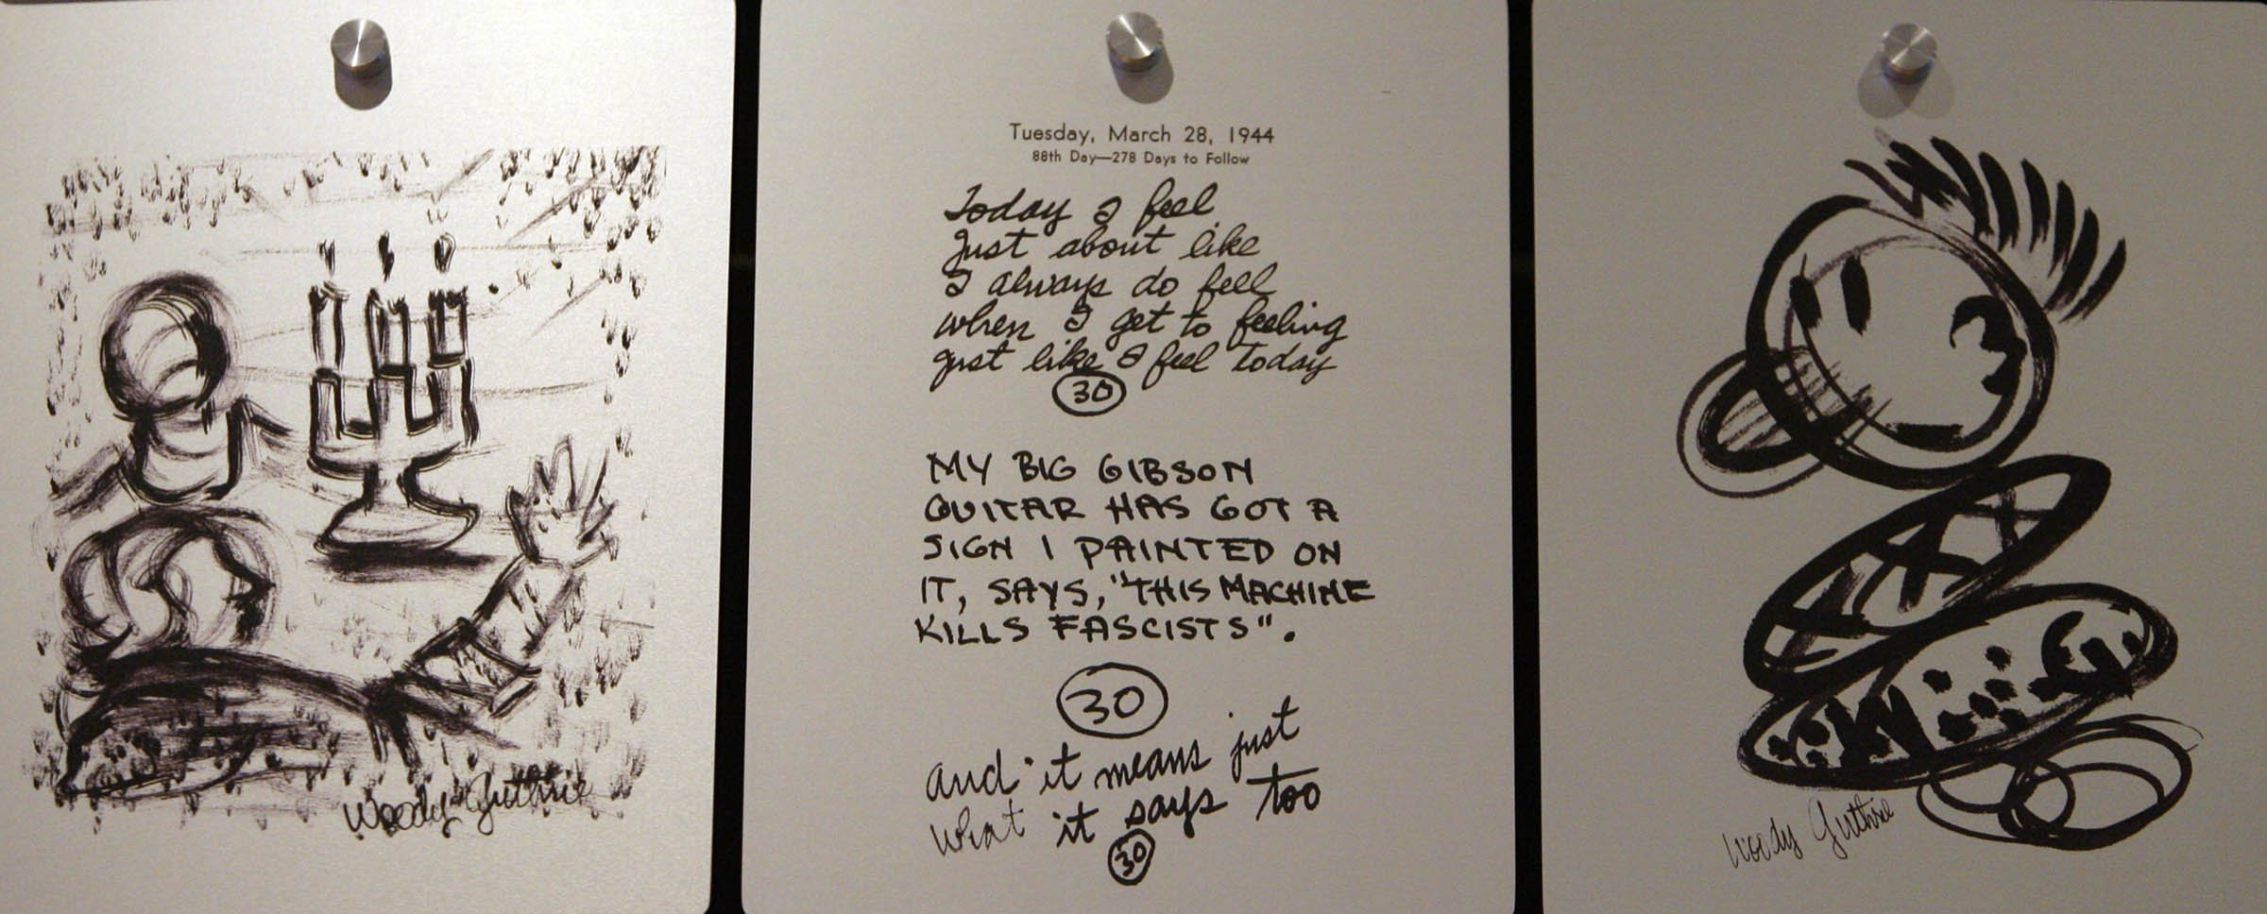 Woody Guthrie
Tuesday, March 28, 1944
88th Day—278 Days to Follow
Today I feel
Just about like
I always do feel
when I get to feeling
Just like I feel today
30
MY BIG GIBSON
GUITAR HAS GOT A
SIGN I PAINTED ON
IT, SAYS, "THIS MACHINE
KILLS FASCISTS".
30
and it means just
what it says too
30
Woody Guthrie